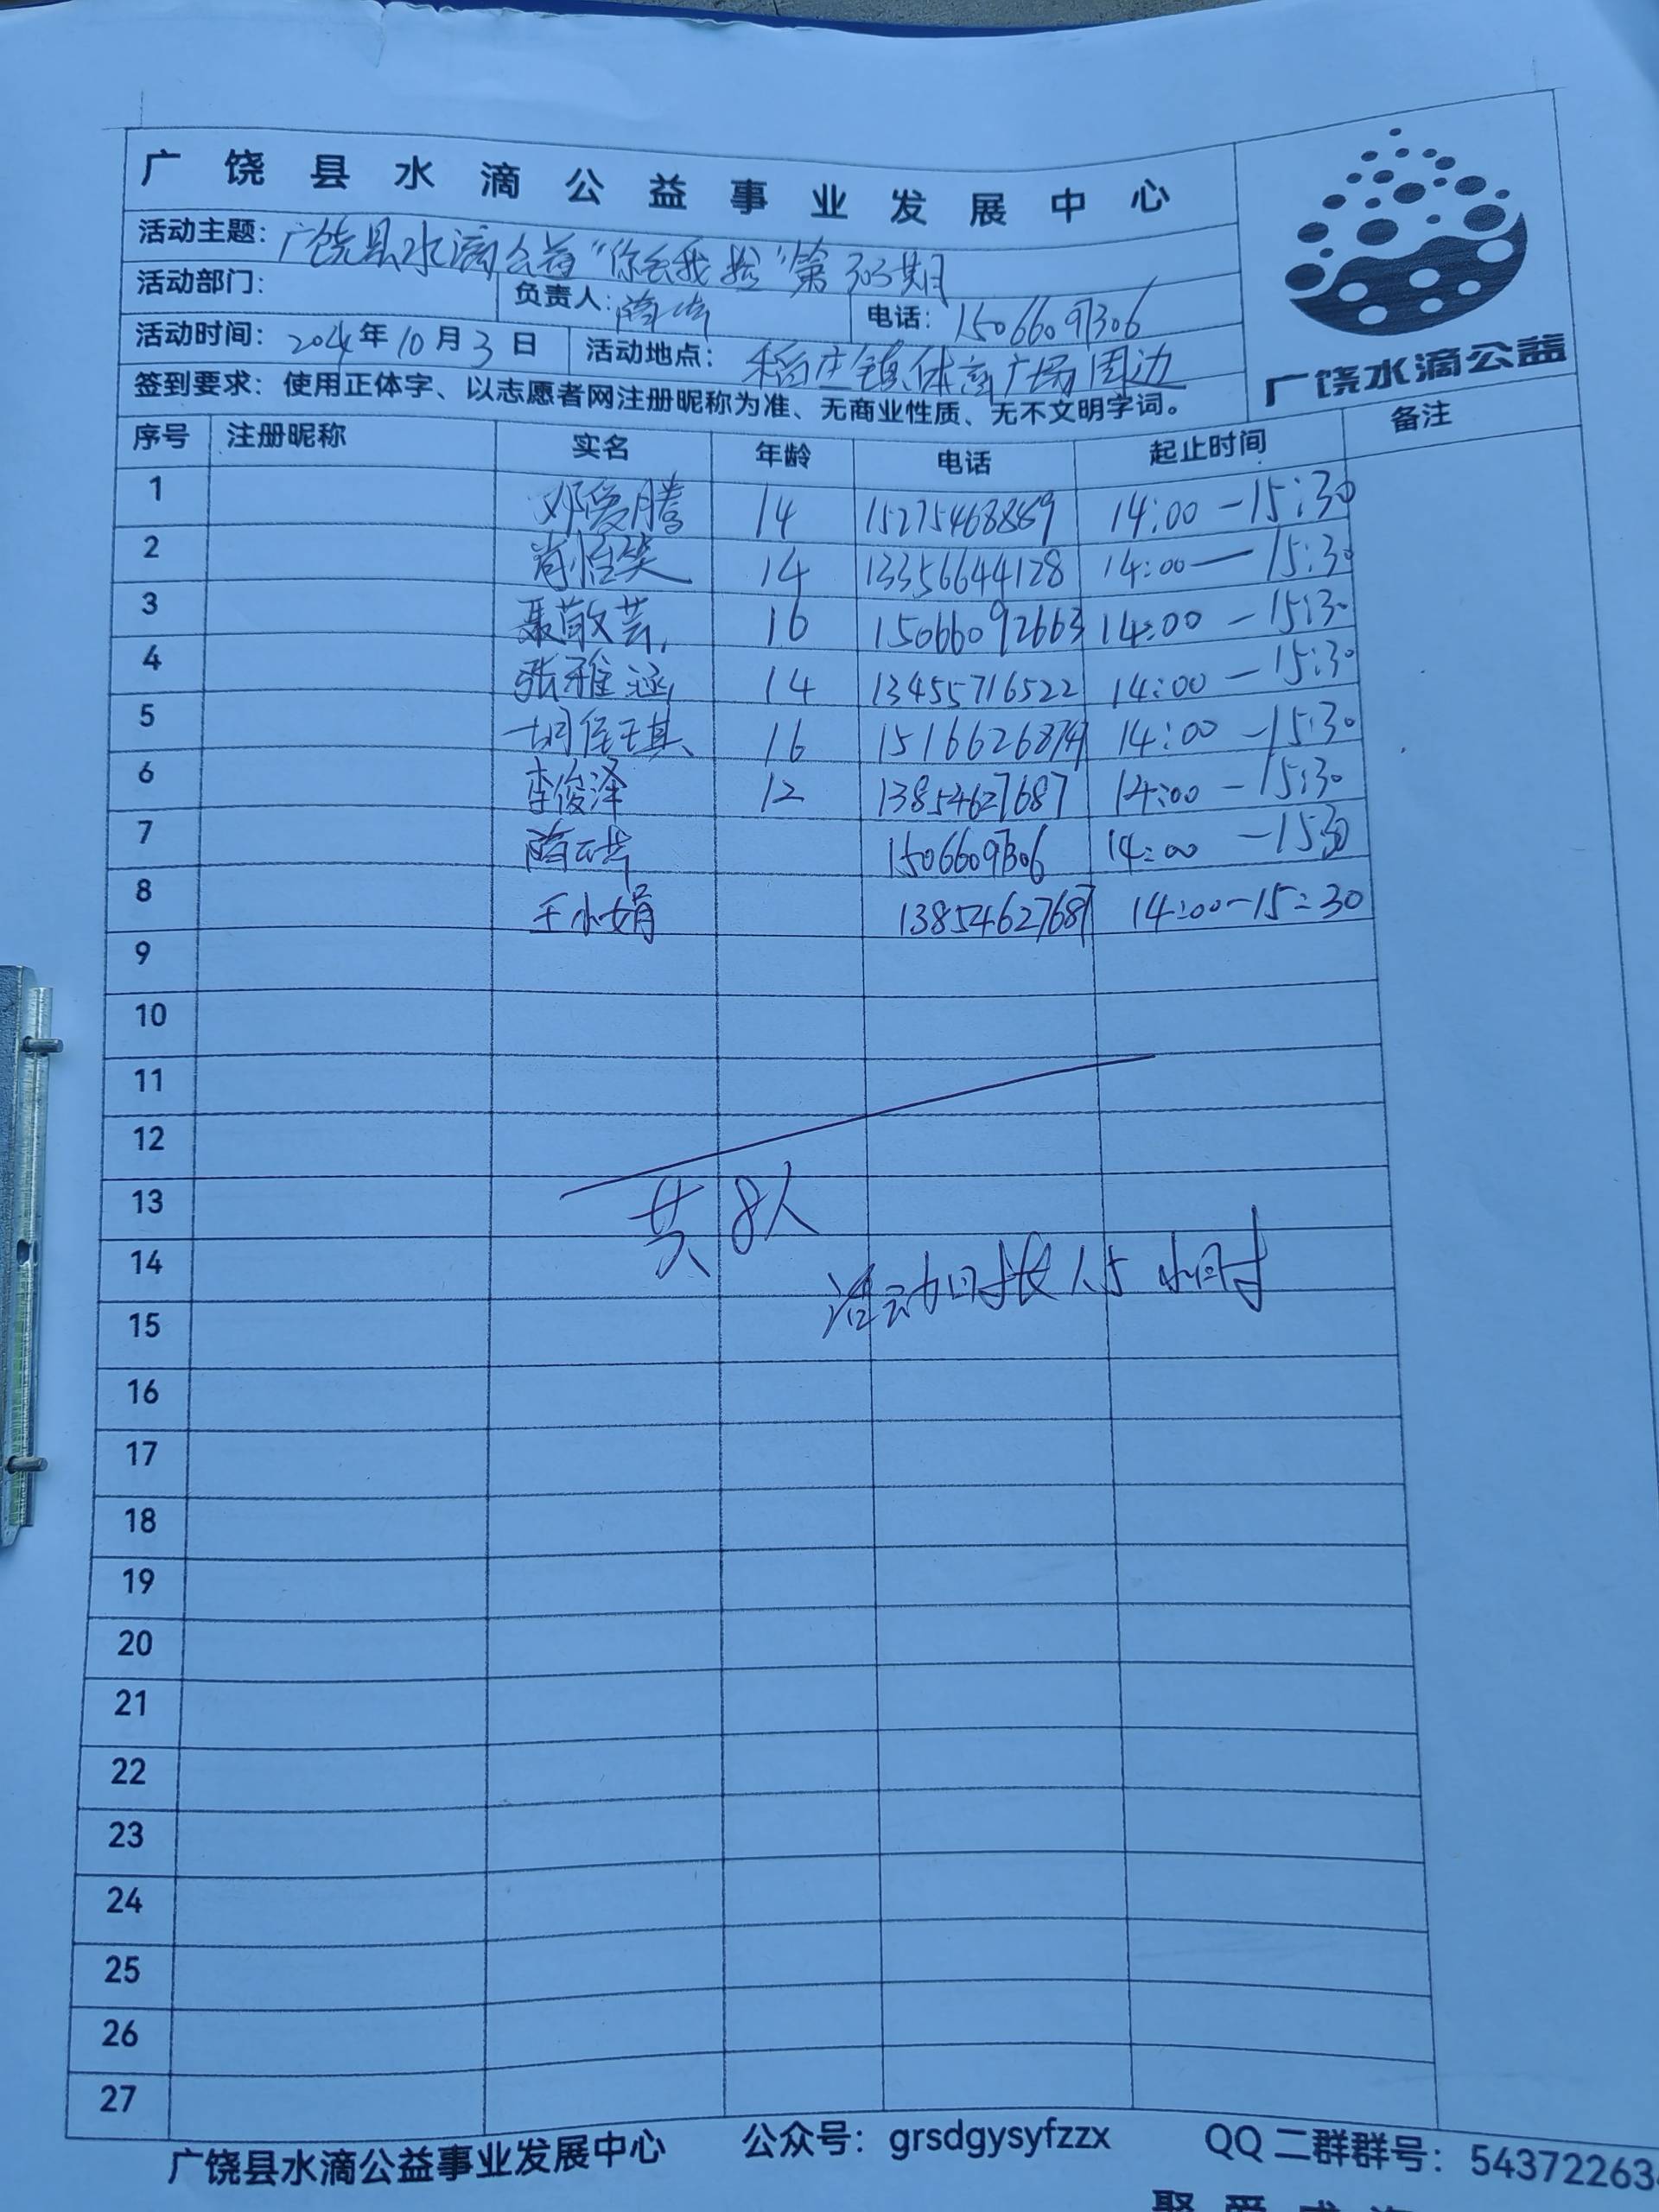 广饶县水滴公益事业发展中心
活动主题：广饶县水滴公益“你丢我捡”第303期
活动部门： 负责人： 电话：15066097306
活动时间：2024年10月3日 活动地点：稻庄镇体育广场周边
签到要求：使用正体字、以志愿者网注册昵称为准、无商业性质、无不文明字词。
广饶水滴公益
序号 注册昵称 实名 年龄 电话 起止时间 备注
1 邓爱腾 14 15275468889 14:00-15:30
2 14 13356644128 14:00-15:30
3 聂敬芸 16 15066092663 14:00-15:30
4 张雅涵 14 13455716522 14:00-15:30
5 16 15166268 14:00-15:30
6 李俊泽 12 13854627687 14:00-15:30
7 15066097306 14:00-1530
8 王小娟 13854627687 14:00-15:30
9
10
11
12
13 共8人
14 活动时长1.5小时
15
16
17
18
19
20
21
22
23
24
25
26
27
广饶县水滴公益事业发展中心 公众号：grsdgysyfzzx QQ二群群号：54372263
聚爱成